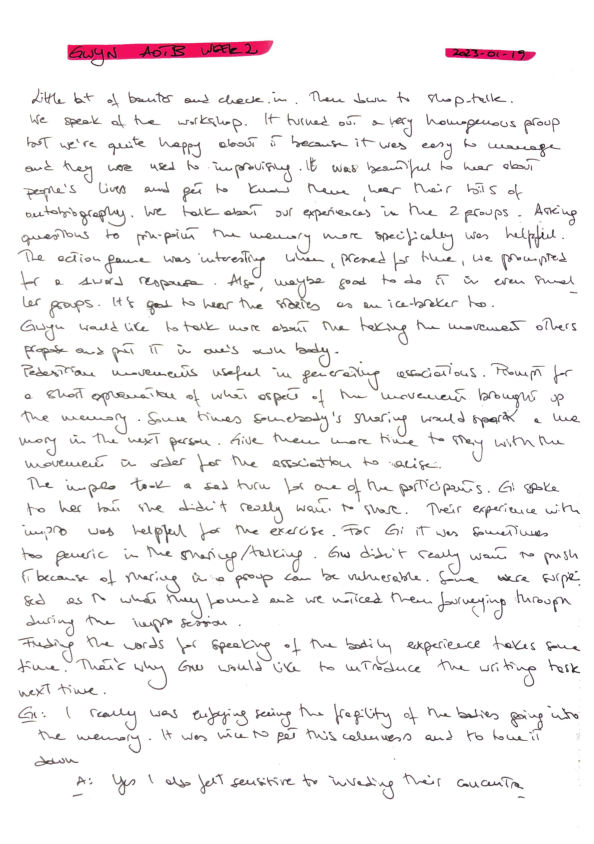 GWYN AOTB WEEK 2
2023-01-19
Little bit of banter and check-in. Then down to shop-talk.
We speak of the workshop. It turned out a very homogenous group
but we're quite happy about it because it was easy to manage
and they were used to improvising. It was beautiful to hear about
people's lives and get to know them, hear their bits of
autobiography. We talk about our experiences in the 2 groups. Asking
questions to pin-point the memory more specifically was helpful.
The action game was interesting when, pressed for time, we prompted
for a 1word response. Also, maybe good to do it in even smal
ler groups. It's good to hear the stories as an ice-breker too.
Gwyn would like to talk more about the taking the movement others
propose and put it in one's own body.
Pedestrian movements useful in generating associations. Prompt for
a short explanation of what aspect of the movement brought up
the memory. Some times somebody's sharing would spark a me
mory in the next person. Give them more time to stay with the
movement in order for the association to arise.
The impro took a sad turn for one of the participants. Gi spoke
to her but she didn't really want to share. Their experience with
impro was helpful for the exercise. For Gi it was sometimes
too generic in the sharing/talking. Gw didn't really want to push
it because of sharing in a group can be vulnerable. Some were surpri
sed as to what they found and we noticed them journeying through
during the impro session.
Finding the words for speaking of the bodily experience takes some
time. That's why Gw would like to introduce the writing task
next time.
Gi: I really was enjoying seeing the fragility of the bodies going into
the memory. It was nice to get this calmness and to tone it
down
A: Yes I also felt sensitive to invading their concentra